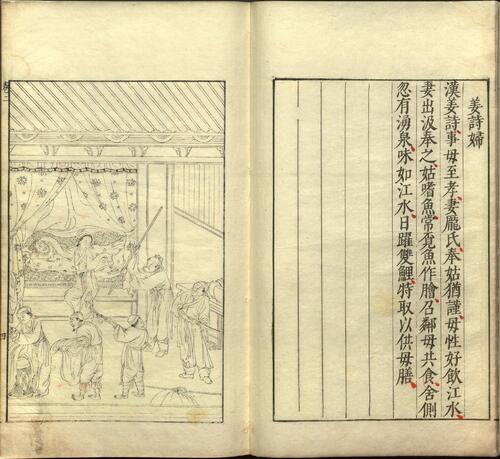 姜詩婦
漢姜詩事母至孝妻龐氏奉姑猶謹母性好飲江水
妻出汲奉之姑嗜魚常覔魚作膾召鄰母共食舍側
忽有湧泉味如江水日躍雙鯉特取以供母膳
卷二
四